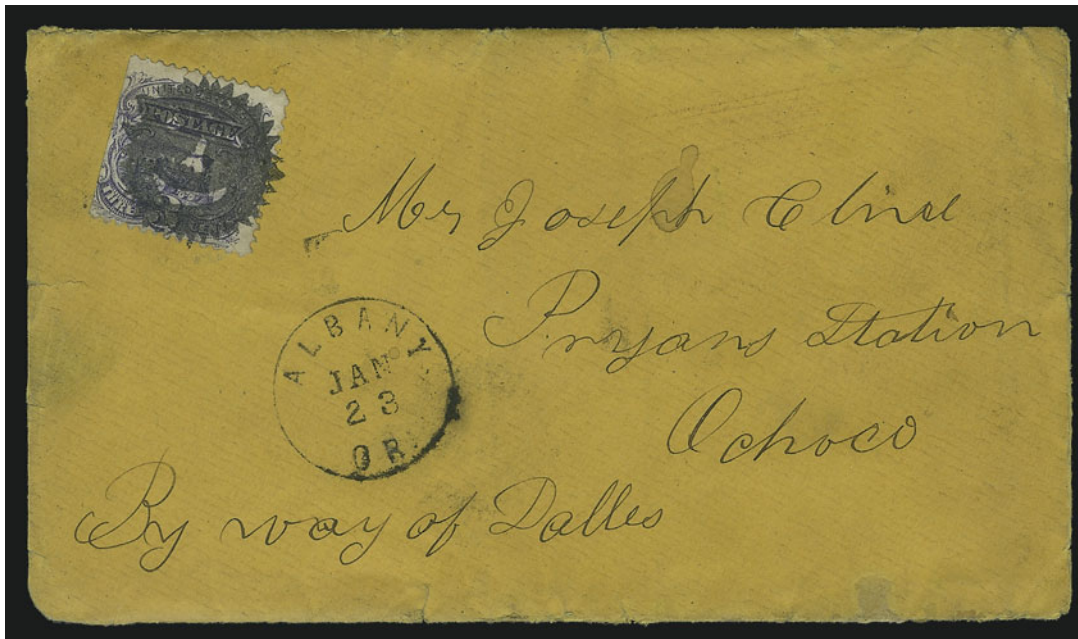 UNITED
POSTAGE
Mr Joseph Cline
Pryans Station
Ochoco
ALBANY
JAN
23
OR.
By way of Dalles